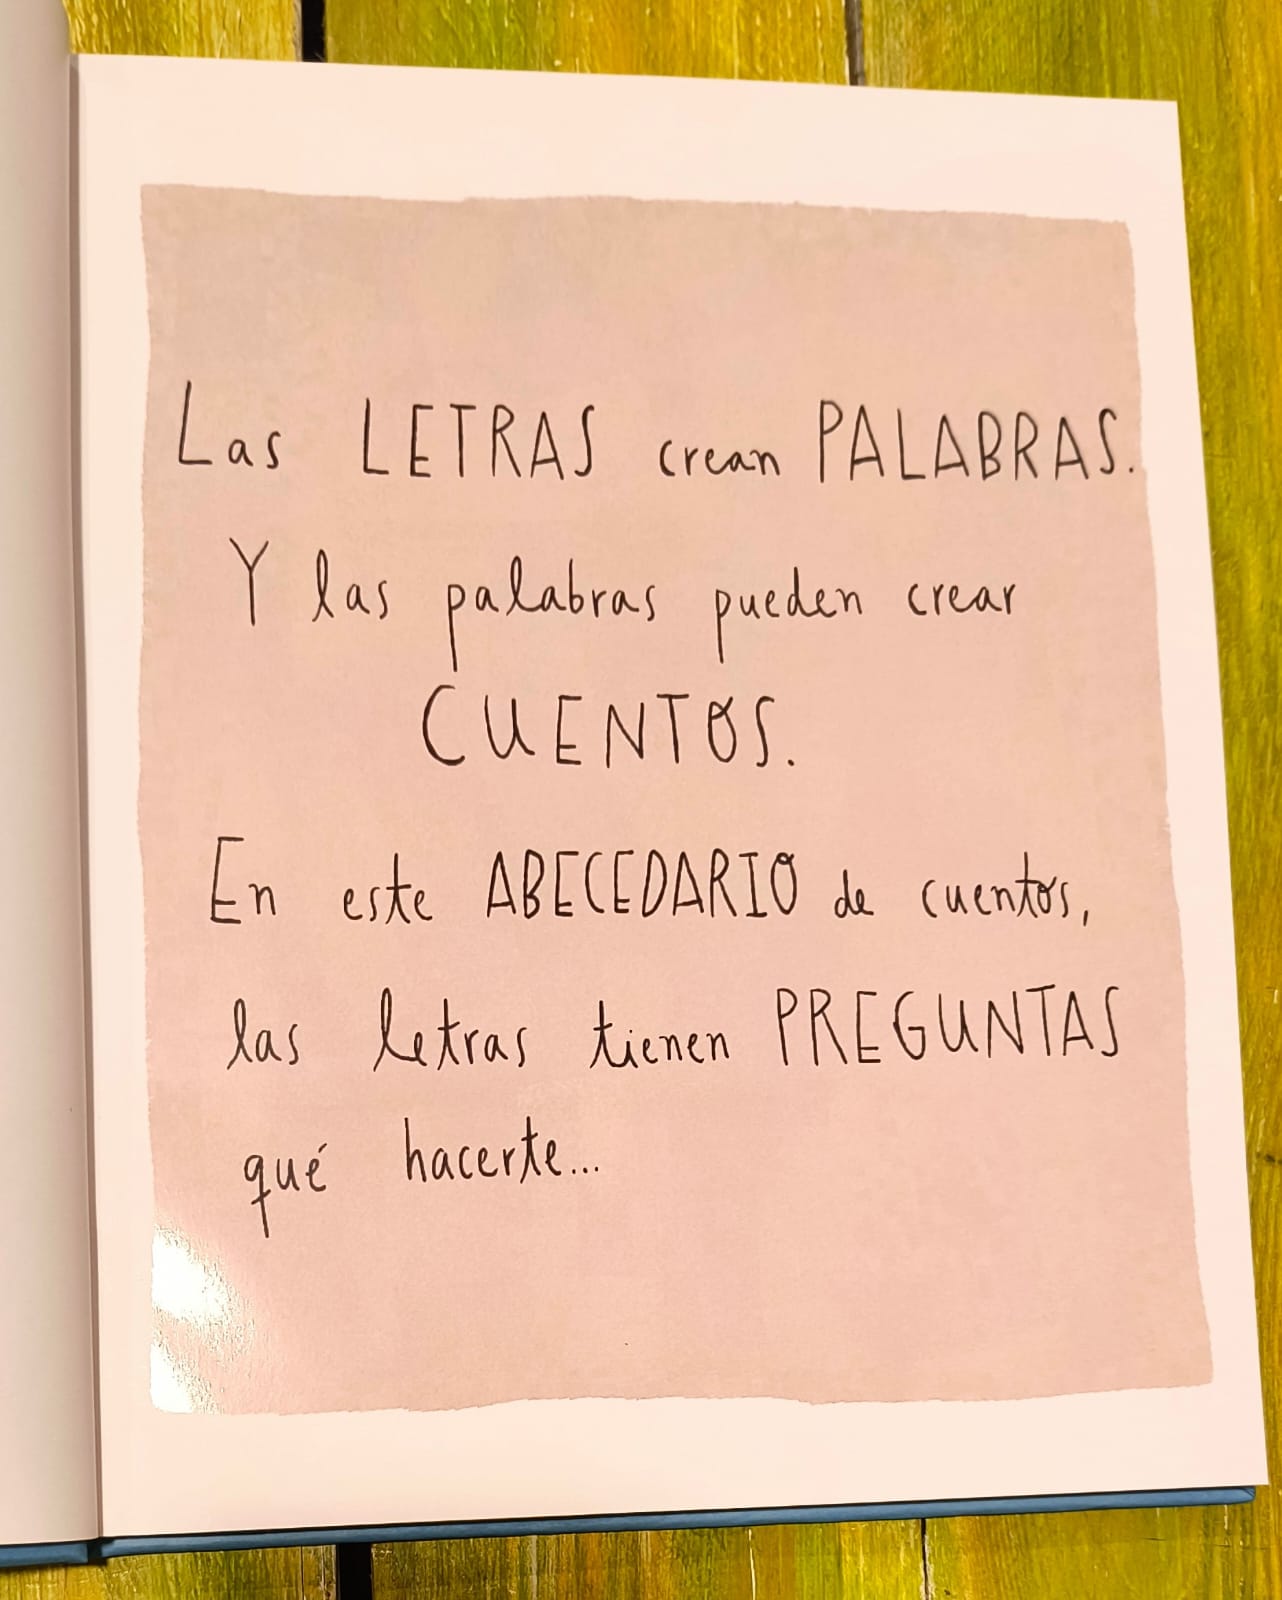 Las LETRAS crean PALABRAS.
Y las palabras pueden crear
CUENTOS.
En este ABECEDARIO de cuentos,
las letras tienen PREGUNTAS
qué hacerte...